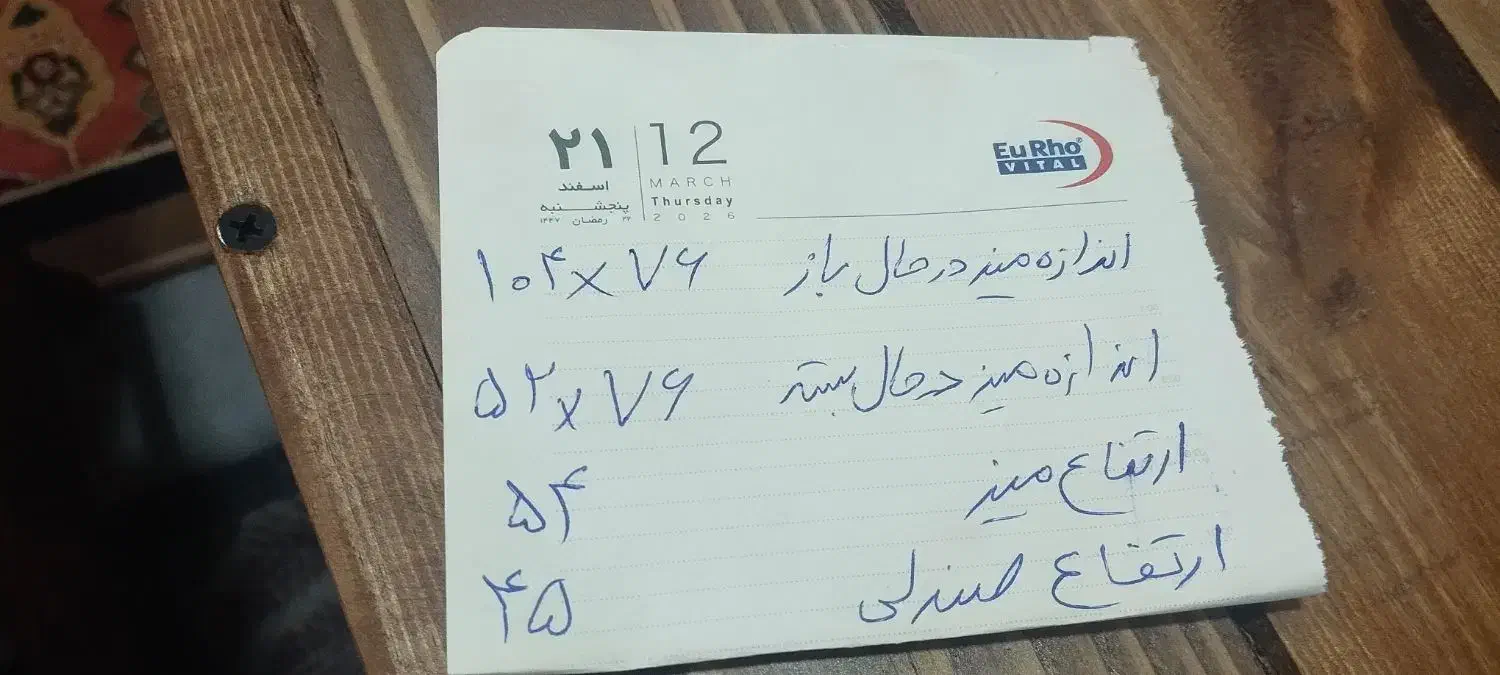 ۲۱
اسفند
پنجشنبه
۲۲ رمضان ۱۴۴۷
12
MARCH
Thursday
2026
EuRho®
VITAL
اندازه میز در حال باز ۱۰۴×۷۶
اندازه میز در حال بسته ۵۲×۷۶
ارتفاع میز ۵۴
ارتفاع صندلی ۴۵